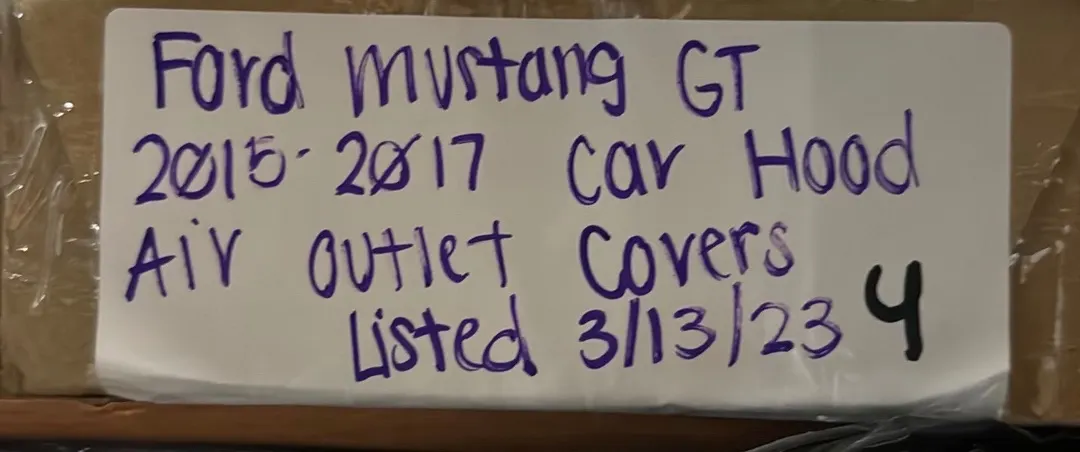 Ford Mustang GT
2015-2017 Car Hood
Air Outlet Covers
Listed 3/13/23 4